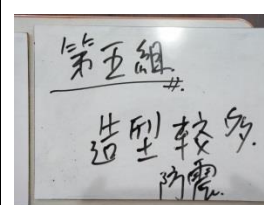 第五組
#.
造型較多.
防震.